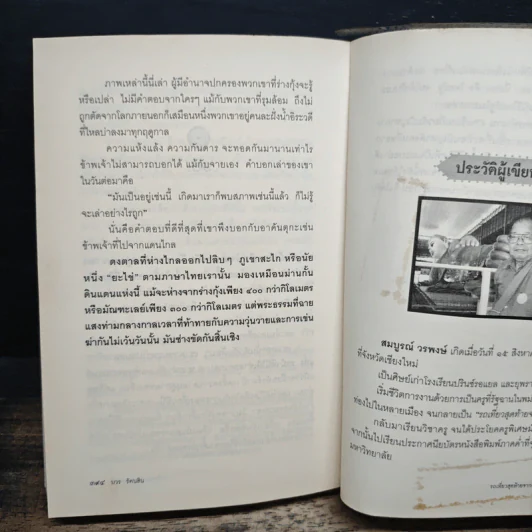 ภาพเหล่านี้นี่เล่า ผู้มีอำนาจปกครองพวกเขาที่ร่างกุ้งจะรู้
หรือเปล่า ไม่มีคำตอบจากใครๆ แม้กับพวกเขาที่รุมล้อม ถึงไม่
ถูกตัดจากโลกภายนอกก็เสมือนหนึ่งพวกเขาอยู่คนละฝั่งน้ำอิระวดี
ที่ไหลบ่าลงมาทุกฤดูกาล
ความแห้งแล้ง ความกันดาร จะทอดกันมานานเท่าไร
ข้าพเจ้าไม่สามารถบอกได้ แม้กับจายเอง คำบอกเล่าของเขา
ในวันต่อมาคือ
"มันเป็นอยู่เช่นนี้ เกิดมาเราก็พบสภาพเช่นนี้แล้ว ก็ไม่รู้
จะเล่าอย่างไรถูก"
นั่นคือคำตอบที่ดีที่สุดที่เขาพึงบอกกับอาคันตุกะเช่น
ข้าพเจ้าที่ไปจากแดนไกล
ดงตาลที่ห่างไกลออกไปลิบๆ ภูเขาสะไก หรือนัย
หนึ่ง "ยะไข่" ตามภาษาไทยเรานั้น มองเหมือนม่านกั้น
ดินแดนแห่งนี้ แม้จะห่างจากร่างกุ้งเพียง ๔๐๐ กว่ากิโลเมตร
หรือมัณฑะเลย์เพียง ๓๐๐ กว่ากิโลเมตร แต่พระธรรมที่ฉาย
แสงท่ามกลางกาลเวลาที่ท้าทายกับความวุ่นวายและการเข่น
ฆ่ากันไม่เว้นวันนั้น มันช่างขัดกันสิ้นเชิง
บวร รัตนสิน
ประวัติผู้เขีย
สมบูรณ์ วรพงษ์ เกิดเมื่อวันที่ ๑๕ สิงหา
ที่จังหวัดเชียงใหม่
เป็นศิษย์เก่าโรงเรียนปรินซ์รอแยล และยุพรา
เริ่มชีวิตการงานด้วยการเป็นครูที่รัฐฉานในพม่
ท่องไปในหลายเมือง จนกลายเป็น "รถเที่ยวสุดท้ายจ
กลับมาเรียนวิชาครู จนได้ประโยคครูพิเศษมั
จากนั้นไปเรียนประกาศนียบัตรหนังสือพิมพ์ภาคค่ำที่จุ
มหาวิทยาลัย
รถเที่ยวสุดท้ายจาก